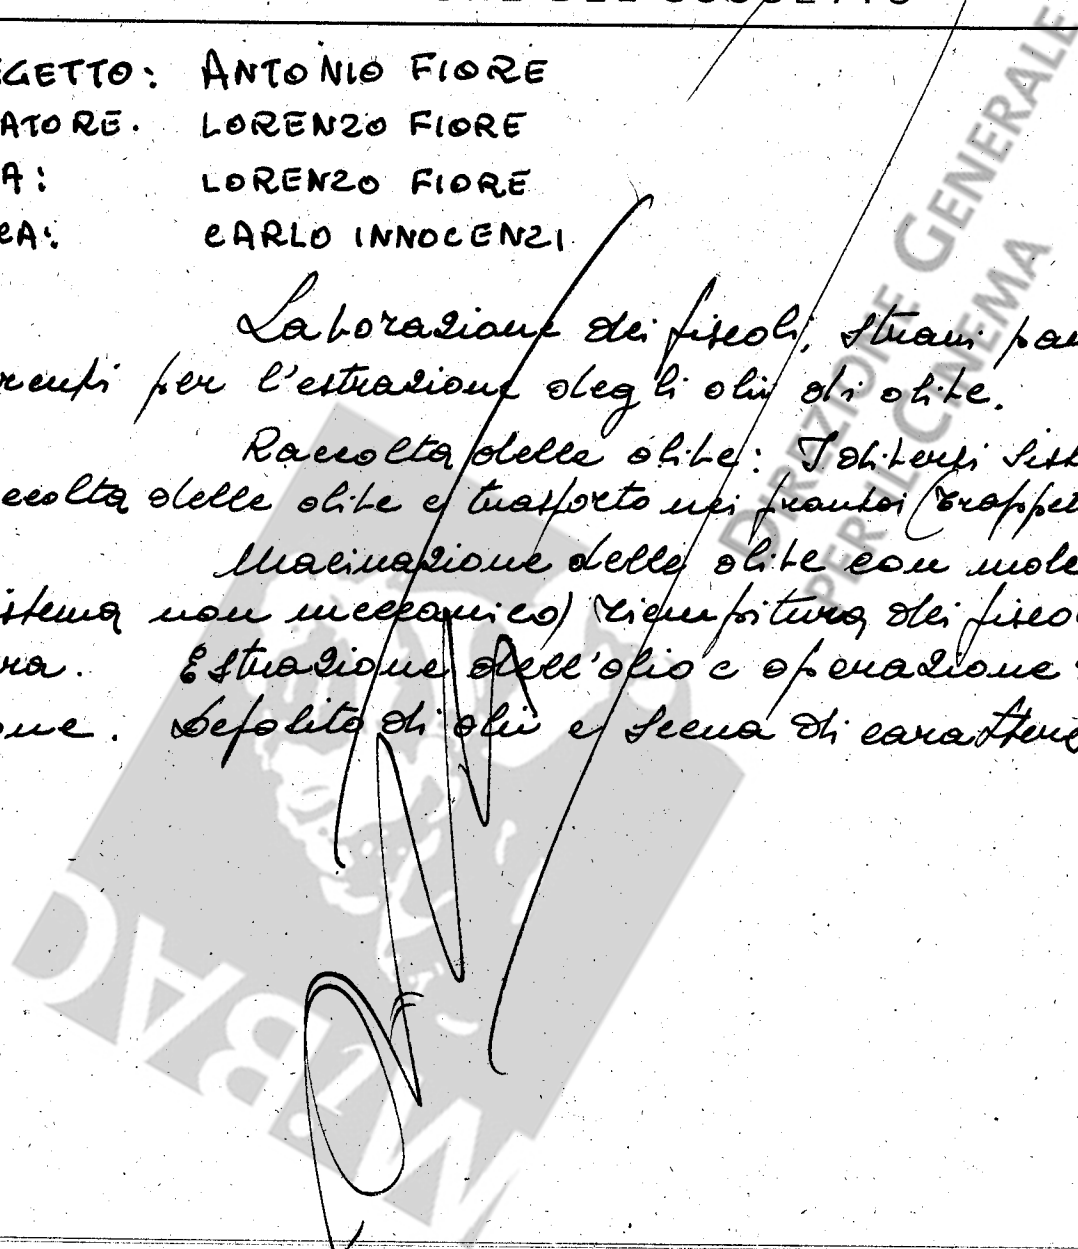 EGETTO: ANTONIO FIORE
ATORE. LORENZO FIORE
A: LORENZO FIORE
CA: CARLO INNOCENZI
Lavorazione dei fiscoli, strani pa
per l'estrazione degli olii di olive.
Raccolta delle olive: I diversi sist
ccolta delle olive e trasporto nei frantoi (trappet
Macinazione delle olive con mole
istema non meccanico) riempitura dei fisco
ra. Estrazione dell'olio e operazione
one. Deposito di olii e scena di caratter
DIREZIONE GENERALE
PER IL CINEMA
MiBAC